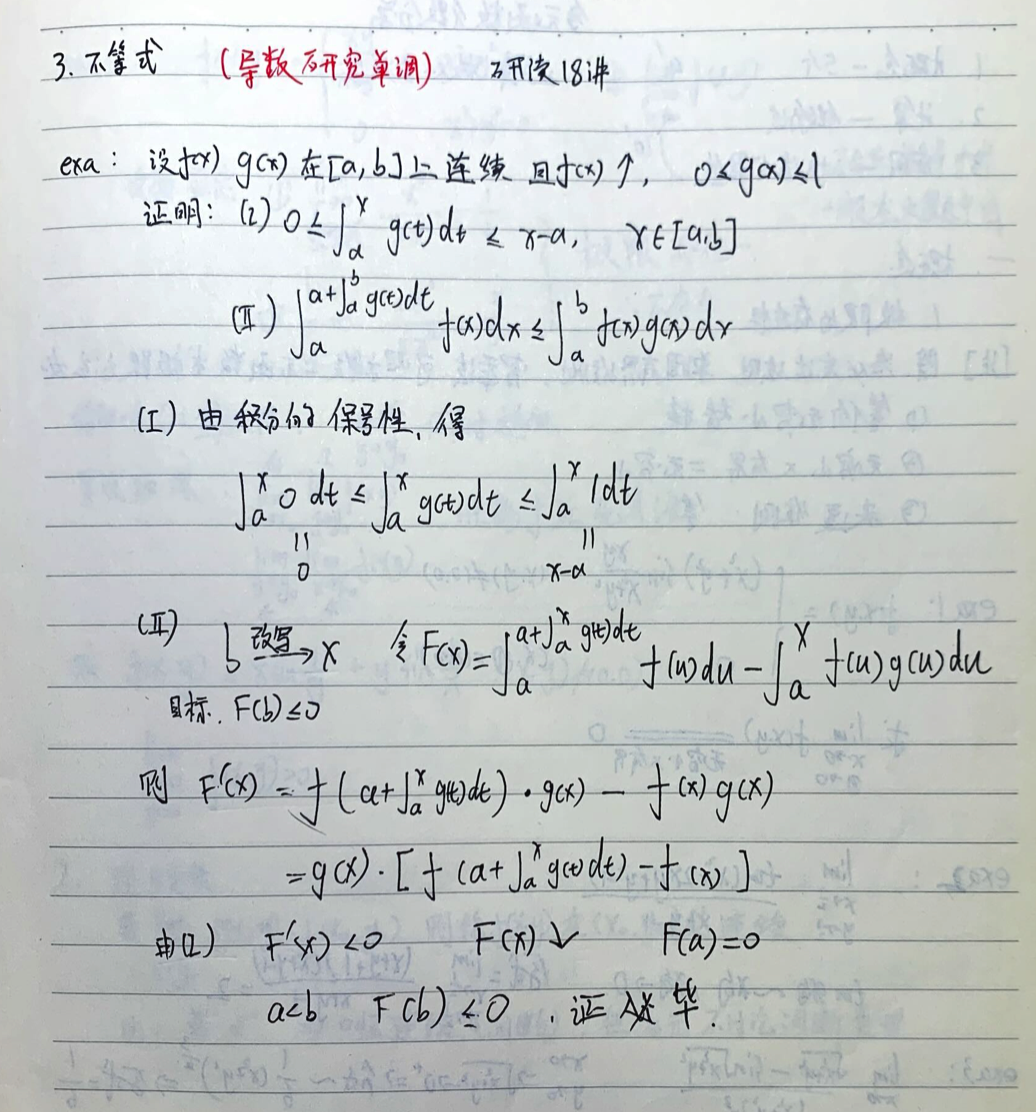 3. 不等式 (导数研究单调) 研读18讲
exa: 设f(x) g(x) 在[a,b]上连续 且f(x)↑, 0≤g(x)≤1
证明: (I) 0≤∫_a^x g(t)dt ≤ x-a, x∈[a,b]
(II) ∫_a^{a+∫_a^b g(t)dt} f(x)dx ≤ ∫_a^b f(x)g(x)dx
(I) 由积分的保号性, 得
∫_a^x 0 dt ≤ ∫_a^x g(t)dt ≤ ∫_a^x 1dt
|| ||
0 x-a
(II) b 改写→ x 令F(x)=∫_a^{a+∫_a^x g(t)dt} f(u)du - ∫_a^x f(u)g(u)du
目标. F(b)≤0
则 F'(x) = f(a+∫_a^x g(t)dt)·g(x) - f(x)g(x)
=g(x)·[f(a+∫_a^x g(t)dt)-f(x)]
由(I) F'(x)<0 F(x)↓ F(a)=0
a<b F(b)≤0. 证 毕.